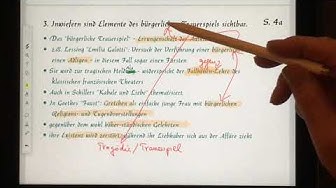 3. Inwiefern sind Elemente des bürgerlichen Trauerspiels sichtbar. S. 4a
Das "bürgerliche Trauerspiel" - Errungenschaft der
z.B. Lessing "Emilia Galotti": Versuch der Verführung einer bürgerlichen
einen Adligen - in diesem Fall sogar einen Fürsten
gegen
Sie wird zur tragischen Heldin - widerspricht der Fallhöhe-Lehre des
französischen klassischen Theaters
Auch in Schillers "Kabale und Liebe" thematisiert.
In Goethes "Faust": Gretchen als einfache junge Frau mit bürgerlichen
Religions- und Tugendvorstellungen
gegenüber dem wohl höher-ständischen Gelehrten
ihre Existenz wird zerstört, während ihr Liebhaber sich aus der Affäre zieht
Tragödie/Trauerspiel